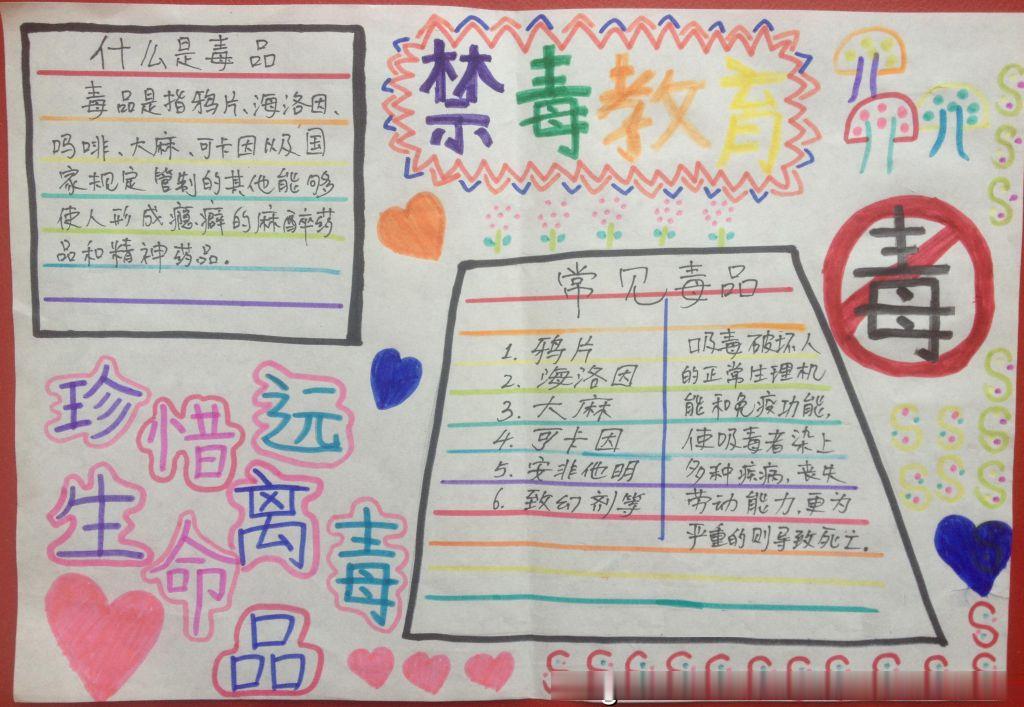 什么是毒品
毒品是指鸦片、海洛因、
吗啡、大麻、可卡因以及国
家规定管制的其他能够
使人形成瘾癖的麻醉药
品和精神药品。
禁毒教育
毒
常见毒品
1. 鸦片
2. 海洛因
3. 大麻
4. 可卡因
5. 安非他明
6. 致幻剂等
吸毒破坏人
的正常生理机
能和免疫功能,
使吸毒者染上
多种疾病,丧失
劳动能力,更为
严重的则导致死亡.
珍惜生命
远离毒品